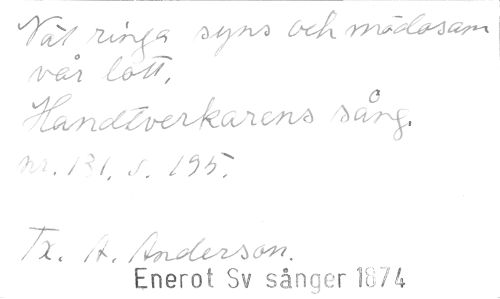 Nät ringa syns och mödosam
vår lott,
Handtverkarens sång.
nr. 131. s. 195.
Tx. A. Anderson.
Enerot Sv sånger 1874